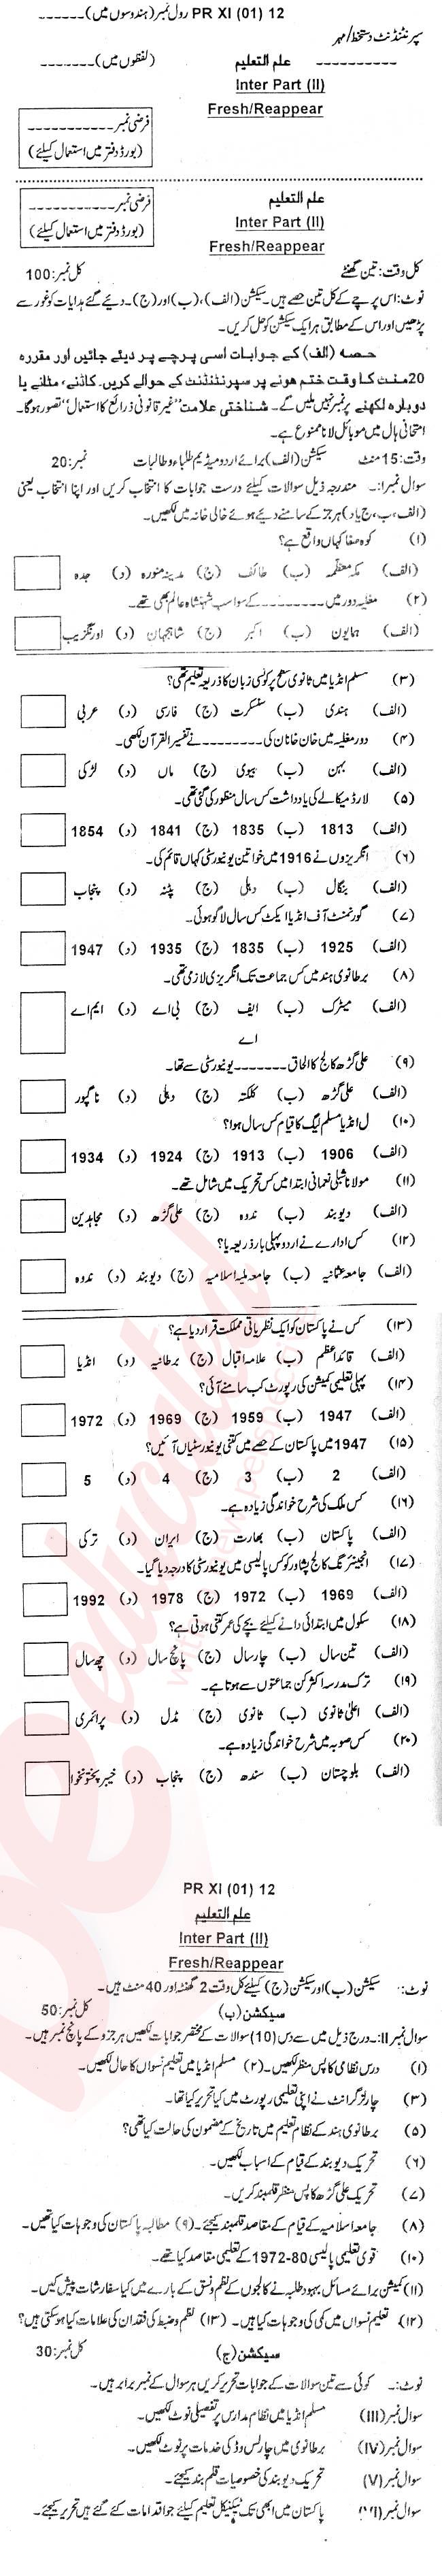 PR XI (01) 12 رول نمبر (ہندوسوں میں)------
سپرنٹنڈنٹ دستخط/مہر
---------- علم التعلیم (لفظوں میں)-------
Inter Part (II)
Fresh/Reappear
فرضی نمبر-----------
(بورڈ دفتر میں استعمال کیلئے)
علم التعلیم
Inter Part (II)
Fresh/Reappear
فرضی نمبر-----------
(بورڈ دفتر میں استعمال کیلئے)
کل وقت: تین گھنٹے کل نمبر: 100
نوٹ: اس پرچے کے کل تین حصے ہیں۔ سیکشن (الف)، (ب) اور (ج)۔ دیئے گئے ہدایات کو غور سے
پڑھیں اور اس کے مطابق ہر ایک سیکشن کو حل کریں۔
حصہ (الف) کے جوابات اسی پرچے پر دیئے جائیں اور مقررہ
20منٹ کا وقت ختم ہونے پر سپرنٹنڈنٹ کے حوالے کریں۔ کاٹنے، مٹانے یا
دوبارہ لکھنے پر نمبر نہیں ملیں گے۔ شناختی علامت "غیر قانونی ذرائع کا استعمال" تصور ہوگا۔
امتحانی ہال میں موبائل لانا ممنوع ہے۔
وقت: 15 منٹ سیکشن (الف) برائے اردو میڈیم طلباء و طالبات نمبر: 20
سوال نمبر I:۔ مندرجہ ذیل سوالات کیلئے درست جوابات کا انتخاب کریں اور اپنا انتخاب یعنی
(الف، ب، ج یا د) ہر جز کے سامنے دیئے ہوئے خالی خانہ میں لکھیں۔
(۱) کوہ صفا کہاں واقع ہے؟
(الف) مکہ معظمہ (ب) طائف (ج) مدینہ منورہ (د) جدہ
(۲) مغلیہ دور میں--------- کے سوا سب شہنشاہ عالم بھی تھے۔
(الف) ہمایون (ب) اکبر (ج) شاہجہان (د) اورنگزیب
(۳) مسلم انڈیا میں ثانوی سطح پر کونسی زبان کا ذریعہ تعلیم تھی؟
(الف) ہندی (ب) سنسکرت (ج) فارسی (د) عربی
(۴) دور مغلیہ میں خان خانان کی-------- نے تفسیر القرآن لکھی۔
(الف) بہن (ب) بیوی (ج) ماں (د) لڑکی
(۵) لارڈ میکالے کی یادداشت کس سال منظور کی گئی تھی۔
(الف) 1813 (ب) 1835 (ج) 1841 (د) 1854
(۶) انگریزوں نے 1916 میں خواتین یونیورسٹی کہاں قائم کی۔
(الف) بنگال (ب) دہلی (ج) پٹنہ (د) پنجاب
(۷) گورنمنٹ آف انڈیا ایکٹ کس سال لاگو ہوئی۔
(الف) 1925 (ب) 1835 (ج) 1935 (د) 1947
(۸) برطانوی ہند میں کس جماعت تک انگریزی لازمی تھی۔
(الف) میٹرک (ب) ایف (ج) بی اے (د) ایم اے
اے
(۹) علی گڑھ کالج کا الحاق------- یونیورسٹی سے تھا۔
(الف) علی گڑھ (ب) کلکتہ (ج) دہلی (د) ناگپور
(۱۰) ل انڈیا مسلم لیگ کا قیام کس سال ہوا؟
(الف) 1906 (ب) 1913 (ج) 1924 (د) 1934
(۱۱) مولانا شبلی نعمانی ابتدا میں کس تحریک میں شامل تھے۔
(الف) دیوبند (ب) ندوہ (ج) علی گڑھ (د) مجاہدین
(۱۲) کس ادارے نے اردو پہلی بار ذریعہ یا؟
(الف) جامعہ عثمانیہ (ب) جامعہ ملیہ اسلامیہ (ج) دیوبند (د) ندوہ
(۱۳) کس نے پاکستان کو ایک نظریاتی مملکت قرار دیا ہے؟
(الف) قائداعظم (ب) علامہ اقبال (ج) برطانیہ (د) انڈیا
(۱۴) پہلی تعلیمی کمیشن کی رپورٹ کب سامنے آئی؟
(الف) 1947 (ب) 1959 (ج) 1969 (د) 1972
(۱۵) 1947 میں پاکستان کے حصے میں کتنی یونیورسٹیاں آئیں؟
(الف) 2 (ب) 3 (ج) 4 (د) 5
(۱۶) کس ملک کی شرح خواندگی زیادہ ہے۔
(الف) پاکستان (ب) بھارت (ج) ایران (د) ترکی
(۱۷) انجینئرنگ کالج پشاور کو کس پالیسی میں یونیورسٹی کا درجہ دیا گیا۔
(الف) 1969 (ب) 1972 (ج) 1978 (د) 1992
(۱۸) سکول میں ابتدائی دانے کیلئے بچے کی عمر کتنی ہوتی ہے؟
(الف) تین سال (ب) چار سال (ج) پانچ سال (د) چھ سال
(۱۹) ترک مدرسہ اکثر کن جماعتوں سے ہوتا ہے۔
(الف) اعلیٰ ثانوی (ب) ثانوی (ج) مڈل (د) پرائمری
(۲۰) کس صوبہ میں شرح خواندگی زیادہ ہے۔
(الف) بلوچستان (ب) سندھ (ج) پنجاب (د) خیبر پختونخوا
PR XI (01) 12
علم التعلیم
Inter Part (II)
Fresh/Reappear
نوٹ:۔ سیکشن (ب) اور سیکشن (ج) کیلئے کل وقت 2 گھنٹہ اور 40 منٹ ہیں۔
سیکشن (ب) کل نمبر: 50
سوال نمبر II:۔ درج ذیل میں سے دس (10) سوالات کے مختصر جوابات لکھیں ہر جزو کے پانچ نمبر ہیں۔
(۱) درس نظامی کا پس منظر لکھیں۔ (۲) مسلم انڈیا میں تعلیم نسواں کا حال لکھیں۔
(۳) چارلز گرانٹ نے اپنی تعلیمی رپورٹ میں کیا تحریر کیا تھا۔
(۵) برطانوی ہند کے نظام تعلیم میں تاریخ کے مضمون کی حالت کیا تھی؟
(۶) تحریک دیوبند کے قیام کے اسباب لکھیں۔
(۷) تحریک علی گڑھ کا پس منظر قلمبند کریں۔
(۸) جامعہ اسلامیہ کے قیام کے مقاصد قلمبند کیجئے۔ (۹) مطالبہ پاکستان کی وجوہات کیا تھیں۔
(۱۰) قومی تعلیمی پالیسی 80-1972 کے تعلیمی مقاصد کیا تھے۔
(۱۱) کمیشن برائے مسائل بہبود طلبہ نے کالجوں کے نظم و نسق کے بارے میں کیا سفارشات پیش کیں۔
(۱۲)۔ تعلیم نسواں میں کمی کی وجوہات کیا ہیں۔ (۱۳) نظم و ضبط کی فقدان کی علامات کیا ہوسکتی ہیں؟
سیکشن (ج) کل نمبر: 30
نوٹ:۔ کوئی سے تین سوالات کے جوابات تحریر کریں ہر سوال کے نمبر برابر ہیں۔
سوال نمبر (III) مسلم انڈیا میں نظام مدارس پر تفصیلی نوٹ لکھیں۔
سوال نمبر (IV) برطانوی میں چارلس وڈ کی خدمات پر نوٹ لکھیں۔
سوال نمبر (V) تحریک دیوبند کی خصوصیات قلم بند کیجئے۔
سوال نمبر پاکستان میں ابھی تک ٹیکنیکل تعلیم کیلئے جو اقدامات کئے گئے ہیں تحریر کیجئے۔